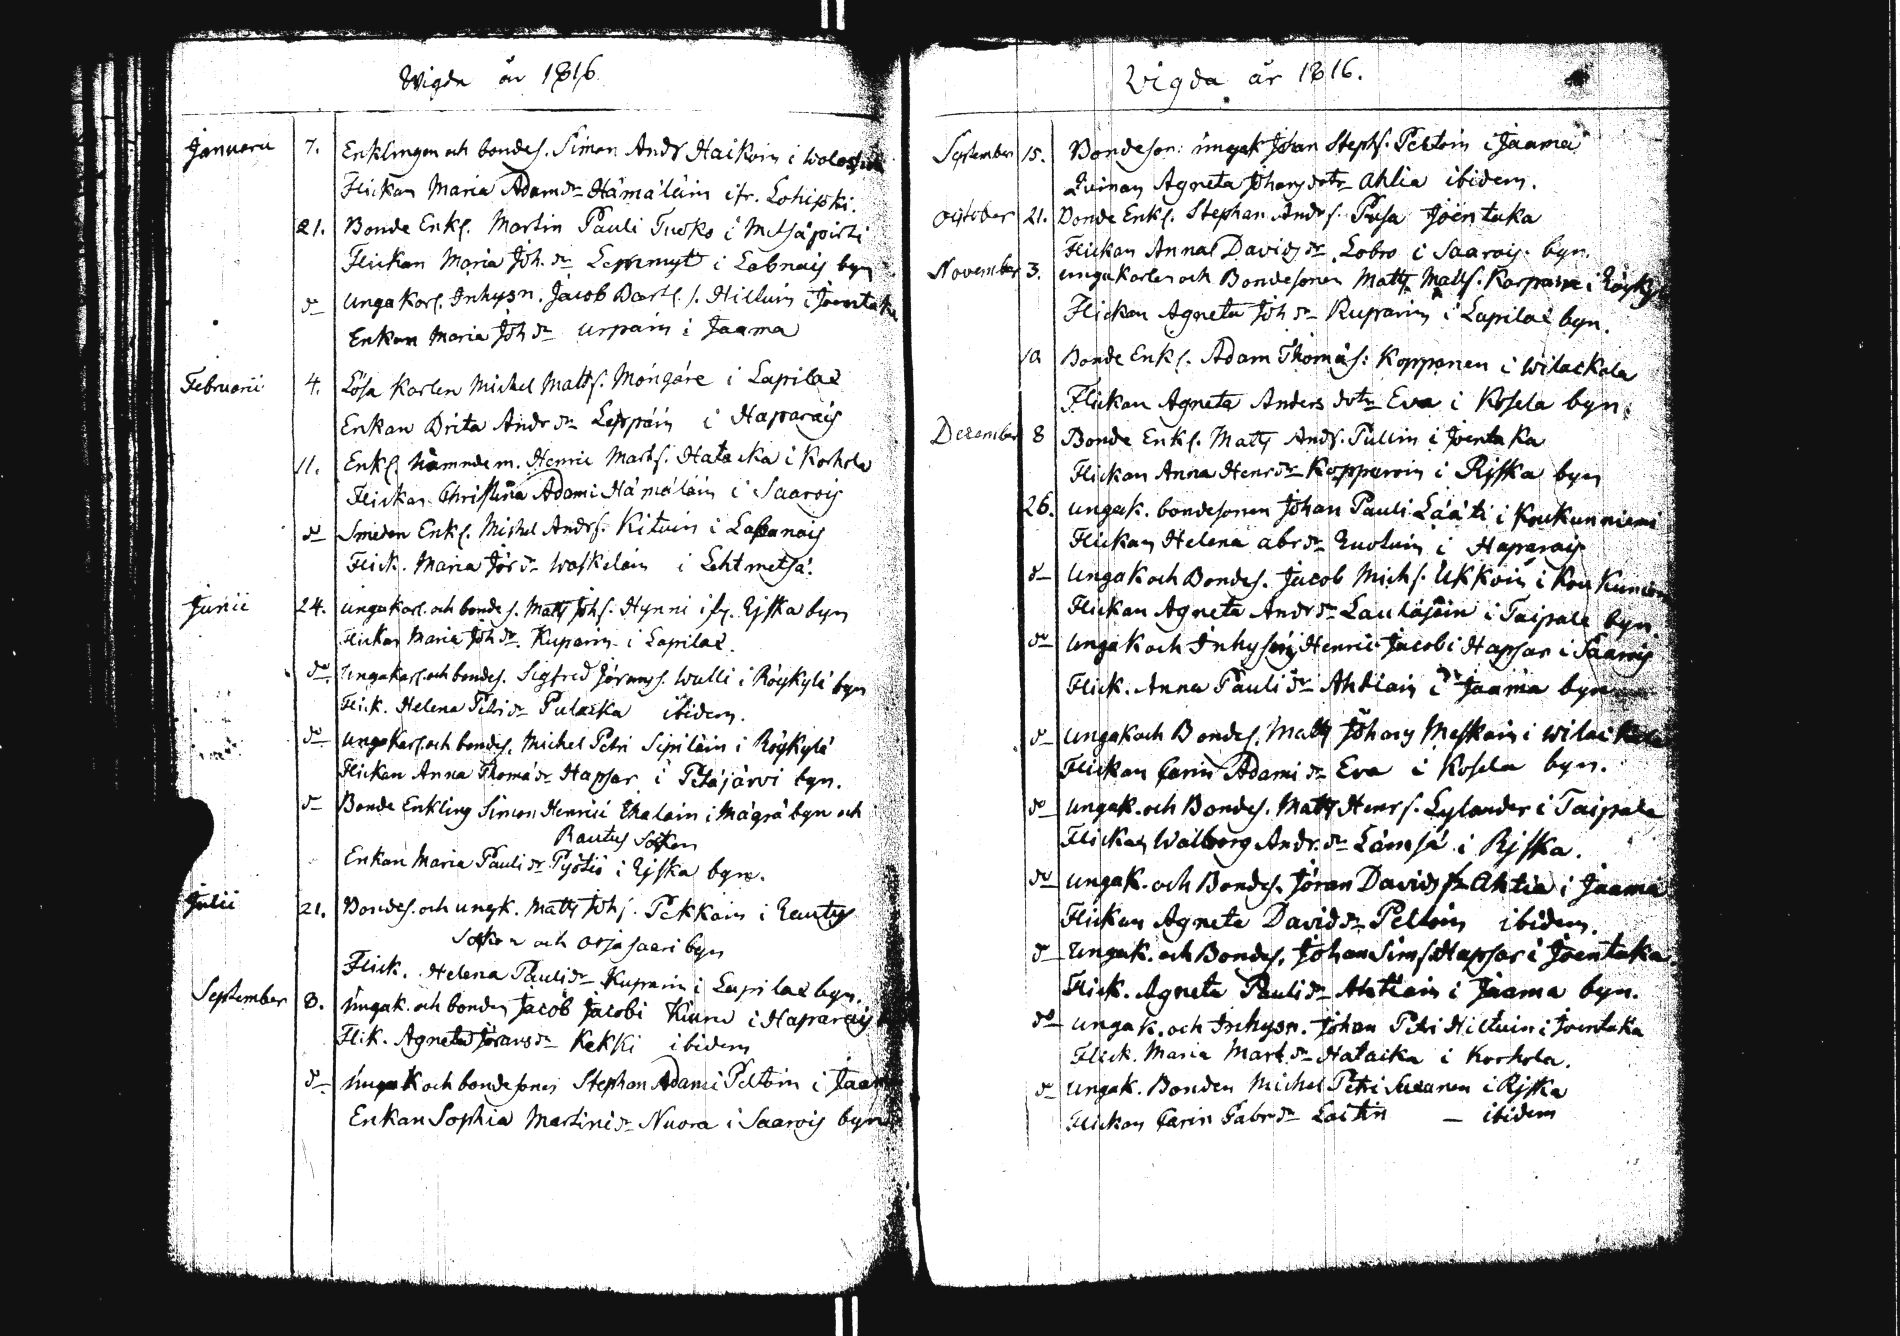 Wigde år 1816
Januarii 7. Enklingen och bondes. Simon Andr Haikoin i
Flickan Maria Adam dr Hämäläin ifr. Lohijoki.
21. Bonde Enkl. Martin Pauli Tusko i Metsäpirti
Flickan Maria Joh. dr i byn
do Ungakarl. Inhysn. Jacob Bartl. s. Hiltuin i Joentaka
Enkan Maria Joh dr Urpain i Jaama
Februarii 4. Lösa Karlen Michel Matts. Möngäre i Lapilax
Enkan Brita Andr dr Leppäin i Haparais
11. Enkl nämndem. Henric Marts. Hatacka i Korhola
Flickan Christina Adami Hämäläin i Saarois
do Smeden Enkl. Michel Andrs. Kituin i Lapanais
Flick. Maria Jör dr Waskeläin i Lehtmetsä.
Junii 24. ungakarl. och bondes. Matts Johs. Hynni i Rjska byn
Flickan Maria Joh dr. Kuparin i Lapilax.
do Ungakarl. och bondes. Sigfred Jörans s. Walli i Röykylä byn
Flick. Helena Petri dr Pulacka ibidem.
do Ungakarl. och bondes. Michel Petri Sipiläin i Röykylä
Flickan Anna Thomæ dr Hapsar i Petäjärvi byn.
do Bonde Enkling Simon Henrici i Mägrä byn och
Rautus Soken
Enkan Maria Pauli dr i Rjska byn.
Julii 21. Bondes. och ungk. Matts Joh s. Pekkain i Rautus
Soken och Orjasaari byn
Flick. Helena Pauli dr Kuparin i Lapilax byn.
September 8. Ungak. och bonden Jacob Jacobi Kiuru i Haparais
Flik. Agneta Jörans dr Kekki ibidem
do Ungak och bondesonen Stephan Adami Peltoin i Jaama
Enkan Sophia Martini dr Nuora i Saarois byn
Wigda år 1816.
September 15. Bondeson: ungak Johan Stephs. Peltoin i Jaama
Qvinan Agneta Johans dotr Ahtia ibidem.
October 21. Bonde Enkl. Stephan Andrs. Pusa Joentaka
Flickan Anna Davids dr Lobro i Saarois. byn.
November 3. ungakarlen och Bondesonen Matts Matts. Karpain i
Flickan Agneta Joh dr Kuparin i Lapilax byn.
10 Bonde Enkl. Adam Thomæ s: Kopponen i Wilackala
Flickan Agneta Anders dotr Eva i Kosela byn.
December 8 Bonde Enkl. Matts Ands. Pullin i Joentaka
Flickan Anna Henr dr Kopparoin i Rjska byn
26. ungak. bondesonen Johan Pauli Lääti i Koukunniemi
Flickan Helena Abr dr i Haparais
do Ungak och Bondes. Jacob Michs. Ukkoin i
Flickan Agneta Andr dr Laulajain i Taipale byn.
do Ungak och Inhysing Henric Jacobi Hapsar i Saarois
Flick. Anna Pauli dr Ahtiain i Jaama byn
do Ungak och Bondes. Matts Johans Meskain i Wilackala
Flickan Carin Adami dr Eva i Kosela byn.
do Ungak. och Bondes. Matts Henr s. Lylander i Taipale
Flickan Walborg Andr. dr Lämsä i Rjska.
do Ungak. och Bondes. Jöran Davids sr Ahtia i Jaama
Flickan Agneta David dr Peltoin ibidem.
do Ungak. och Bondes. Johan Sims Hapsar i Joentaka.
Flick. Agneta Pauli dr Ahtiain i Jaama byn.
do Ungak. och Inhysn. Johan Petri Hiltuin i Joentaka
Flick. Maria Mart dr Hatacka i Korhola.
do Ungak. Bonden Michel Petri Susanen i Rjska
Flickan Carin Gabr dr Laitin — ibidem